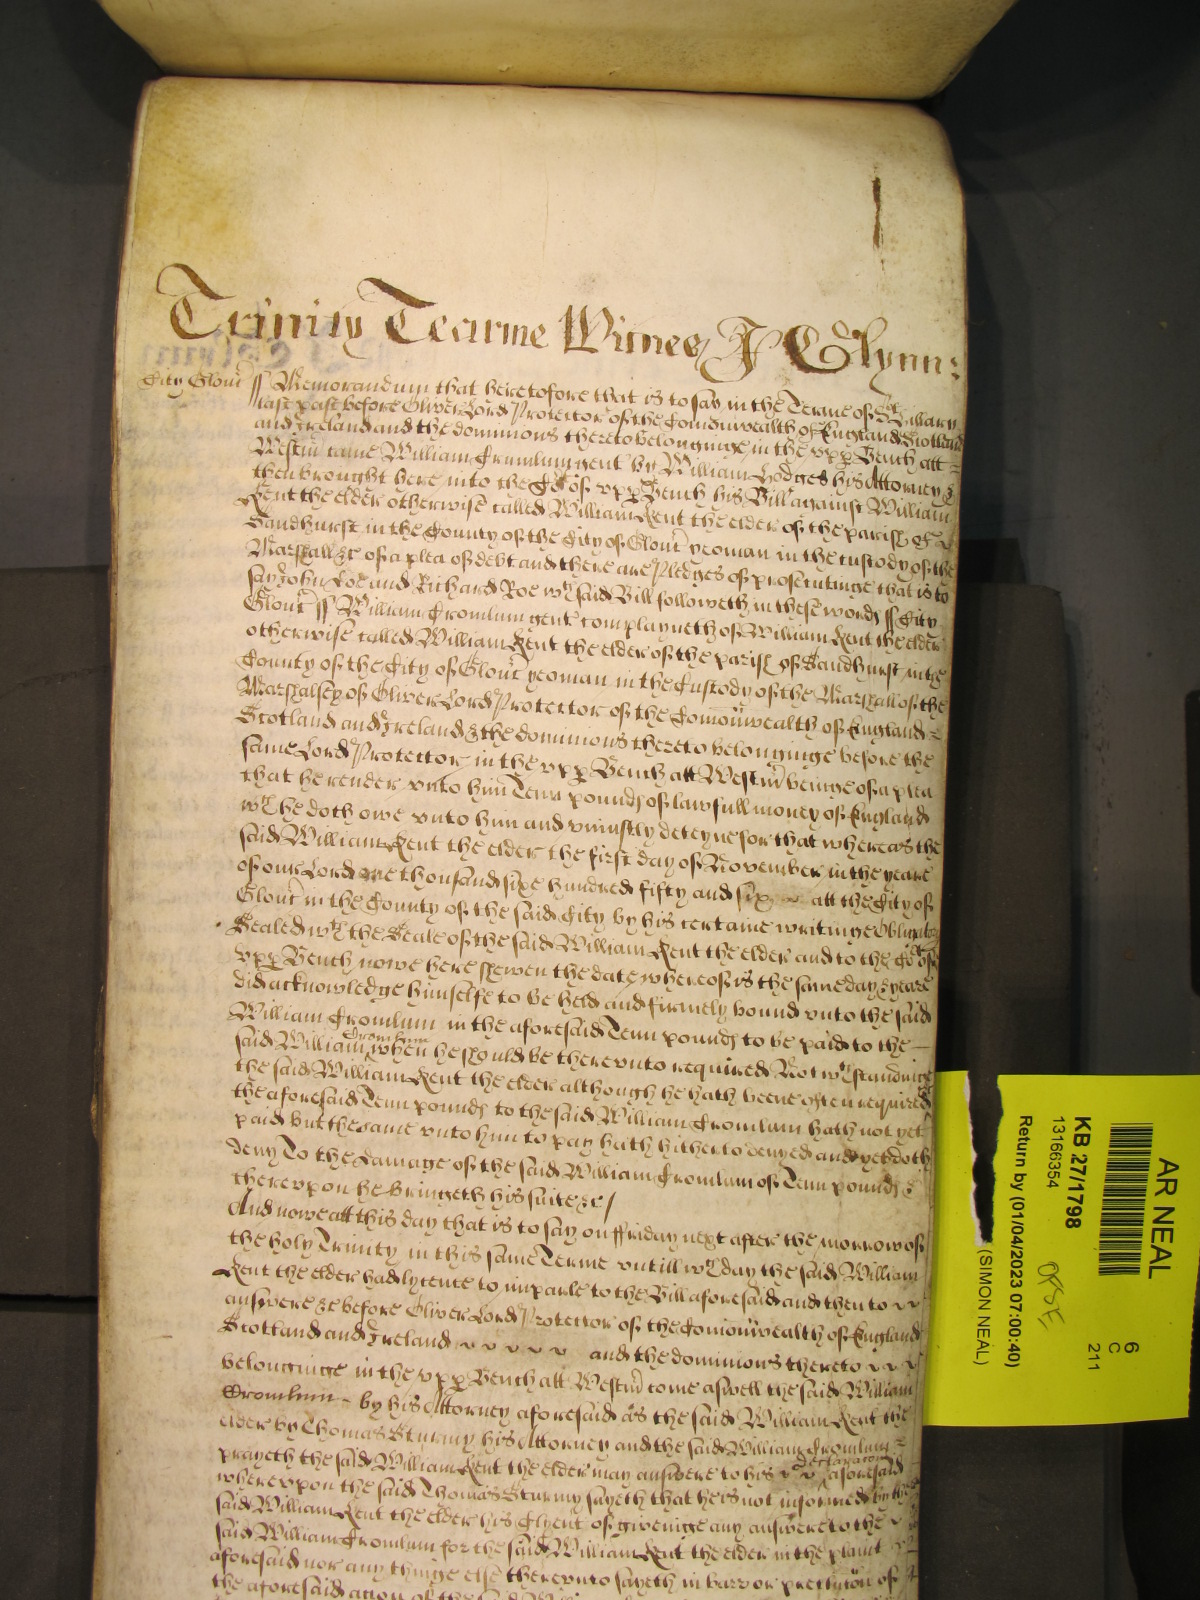 Trinity Tearme Witnes J Glynn:
City Glouc ss Memorandum that heretofore that is to say in the Terme of St Hillary
last past before Oliver Lord Protector of the Comonwealth of England Scotland
and Ireland and the dominions thereto belonginge in the upp Bench att
Westm came William Cromlum gent by William Hodges his Attorney &
then brought here into the Co of upp Bench his Bill against William
Kent the elder otherwise called William Kent the elder of the parish of
Sandhurst in the County of the City of Glouc yeoman in the custody of the
Marshall &c of a plea of debt and there are Pledges of prosecutinge that is to
say John Doe and Richard Roe wch said Bill followeth in these words ss City
Glouc ss William Cromlum gent complayneth of William Kent the elder
otherwise called William Kent the elder of the parish of Sandhurst in the
County of the City of Glouc yeoman in the Custody of the Marshall of the
Marshalsey of Oliver Lord Protector of the Comonwealth of England
Scotland and Ireland & the dominions thereto belonginge before the
same Lord Protector in the upp Bench att Westm beinge of a plea
that he render unto him Tenn pounds of lawfull money of England
wch he doth owe unto him and uniustly deteyne for that whereas the
said William Kent the elder the first day of November in the yeare
of our Lord one thousand sixe hundred fifty and six att the City of
Glouc in the County of the said City by his certaine writinge Obligatory
Sealed wth the Seale of the said William Kent the elder and to the Co of
upp Bench nowe here shewen the date whereof is the same day & yeare
did acknowledge himselfe to be held and firmely bound unto the said
William Cromlum in the aforesaid Tenn pounds to be paid to the
said William Cromlum when he should be thereunto required Notwthstandinge
the said William Kent the elder although he hath beene often required
the aforesaid Tenn pounds to the said William Cromlum hath not yet
paid but the same unto him to pay hath hitherto denyed and yet doth
deny To the damage of the said William Cromlum of Tenn pounds &
thereupon he bringeth his suite &c
And nowe att this day that is to say on ffriday next after the morrow of
the holy Trinity in this same Terme untill wch day the said William
Kent the elder had lycence to imparle to the Bill aforesaid and then to
answere &c before Oliver Lord Protector of the Comonwealth of England
Scotland and Ireland and the dominions thereto
belonginge in the upp Bench att Westm come aswell the said William
Cromlum by his Attorney aforesaid as the said William Kent the
elder by Thomas Sturmy his Attorney and the said William Cromlum
prayeth the said William Kent the elder may answere to his declaracion aforesaid
whereupon the said Thomas Sturmy sayeth that he is not informed by the
said William Kent the elder his Clyent of givinge any answere to the
said William Cromlum for the said William Kent the elder in the plaint
aforesaid nor any thinge else thereunto sayeth in barr or preclusion of
the aforesaid action of the said
AR NEAL
KB 27/1798
13166354
Return by (01/04/2023 07:00:40)
(SIMON NEAL)
6
C
211